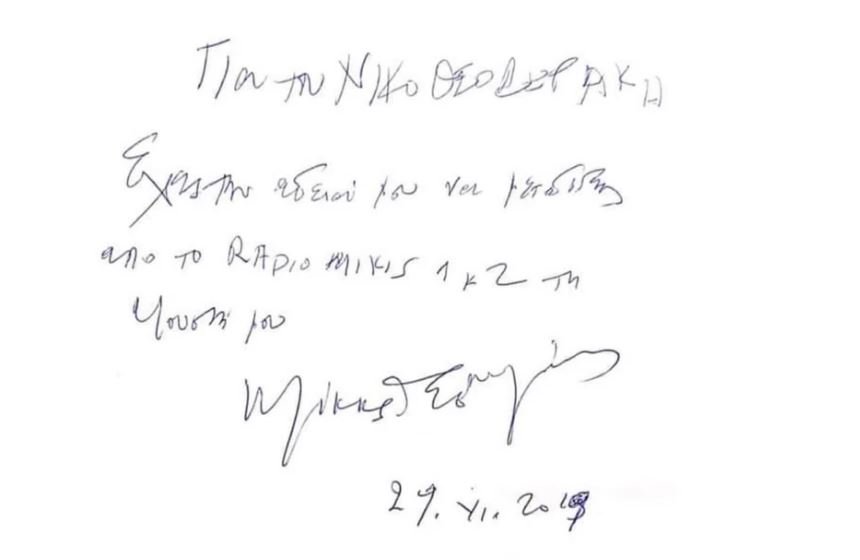 Για τον ΝΙΚΟ ΘΕΟΔΩΡΑΚΗ
Έχεις την άδειά μου να μεταδίδεις
απο το RADIO MIKIS 1 κ 2 τη
Μουσική μου
Μίκης Θεοδωράκης
XI. 20